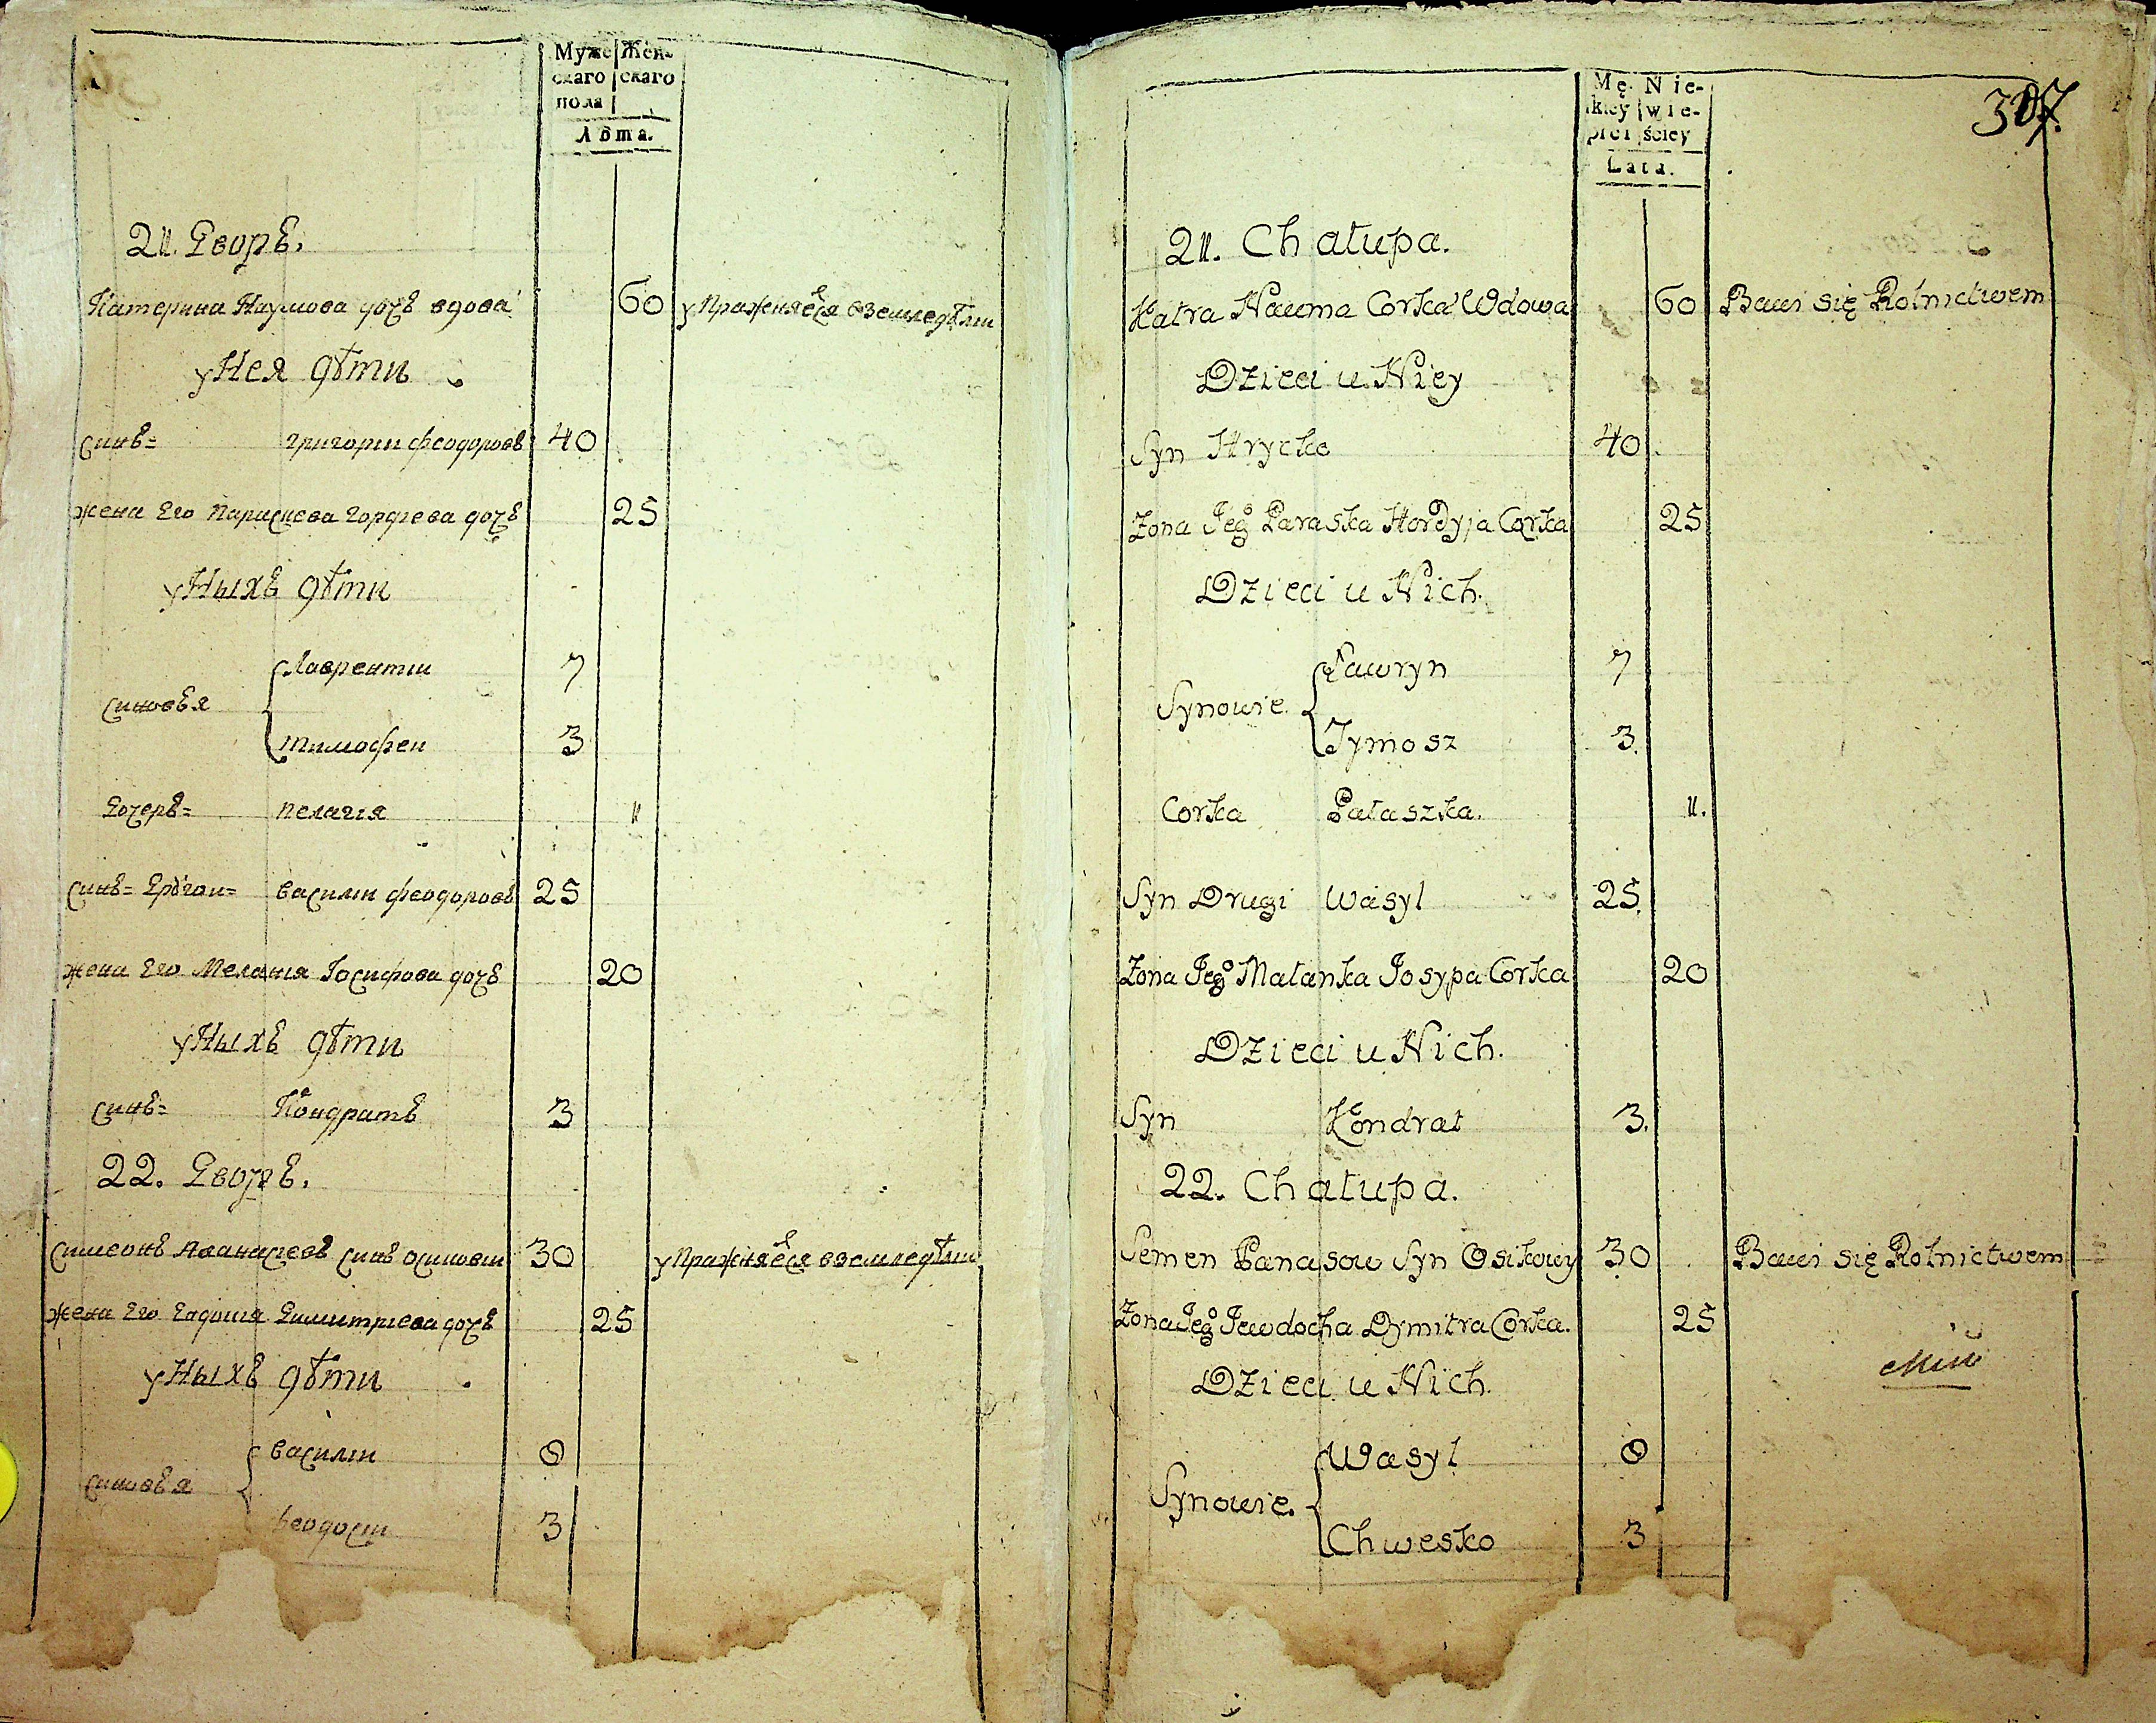 Муже Жен-
скаго скаго
пола
Лѣта.
21. Дворъ.
Катерина Наумова дочъ вдова 60 упражняется вземледѣліи
у Нея дѣти
синъ= григории феодоровъ 40
жена Его Параскева гордѣева дочъ 25
у Ныхъ дѣти
Лаврентии 7
синовья
тимофеи 3
Дочеръ= пелагія 11
синъ= Другои= василіи феодоровъ 25
жена Его Меланія Іосифова дочъ 20
у Ныхъ дѣти
синъ= Кондратъ 3
22. Дворъ.
симеонъ Афанасіевъ синъ 30 упражняется вземледѣліи
жена Его Евдокія Димитріева дочъ 25
у Ныхъ дѣти
василіи 8
синовья
феодосіи 3
Mę- Nie-
skiey wie-
płci ściey
Lata.
307.
21. Chałupa.
Katra Nauma Corka Wdowa 60 Bawi się Rolnictwem
Dzieci u Niey
Syn Hrycko 40
Zona Jego Paraska Hordyja Corka 25
Dzieci u Nich.
Ławryn 7
Synowie
Tymosz 3.
Corka Pałaszka. 11.
Syn Drugi Wasyl 25.
Zona Jego Małanka Josypa Corka 20
Dzieci u Nich.
Syn Kondrat 3.
22. Chałupa.
Semen Panasow Syn Osikowy 30 Bawi się Rolnictwem
Zona Jego Jewdocha Dymitra Corka. 25
Dzieci u Nich.
Wasyl 8
Synowie.
Chwesko 3